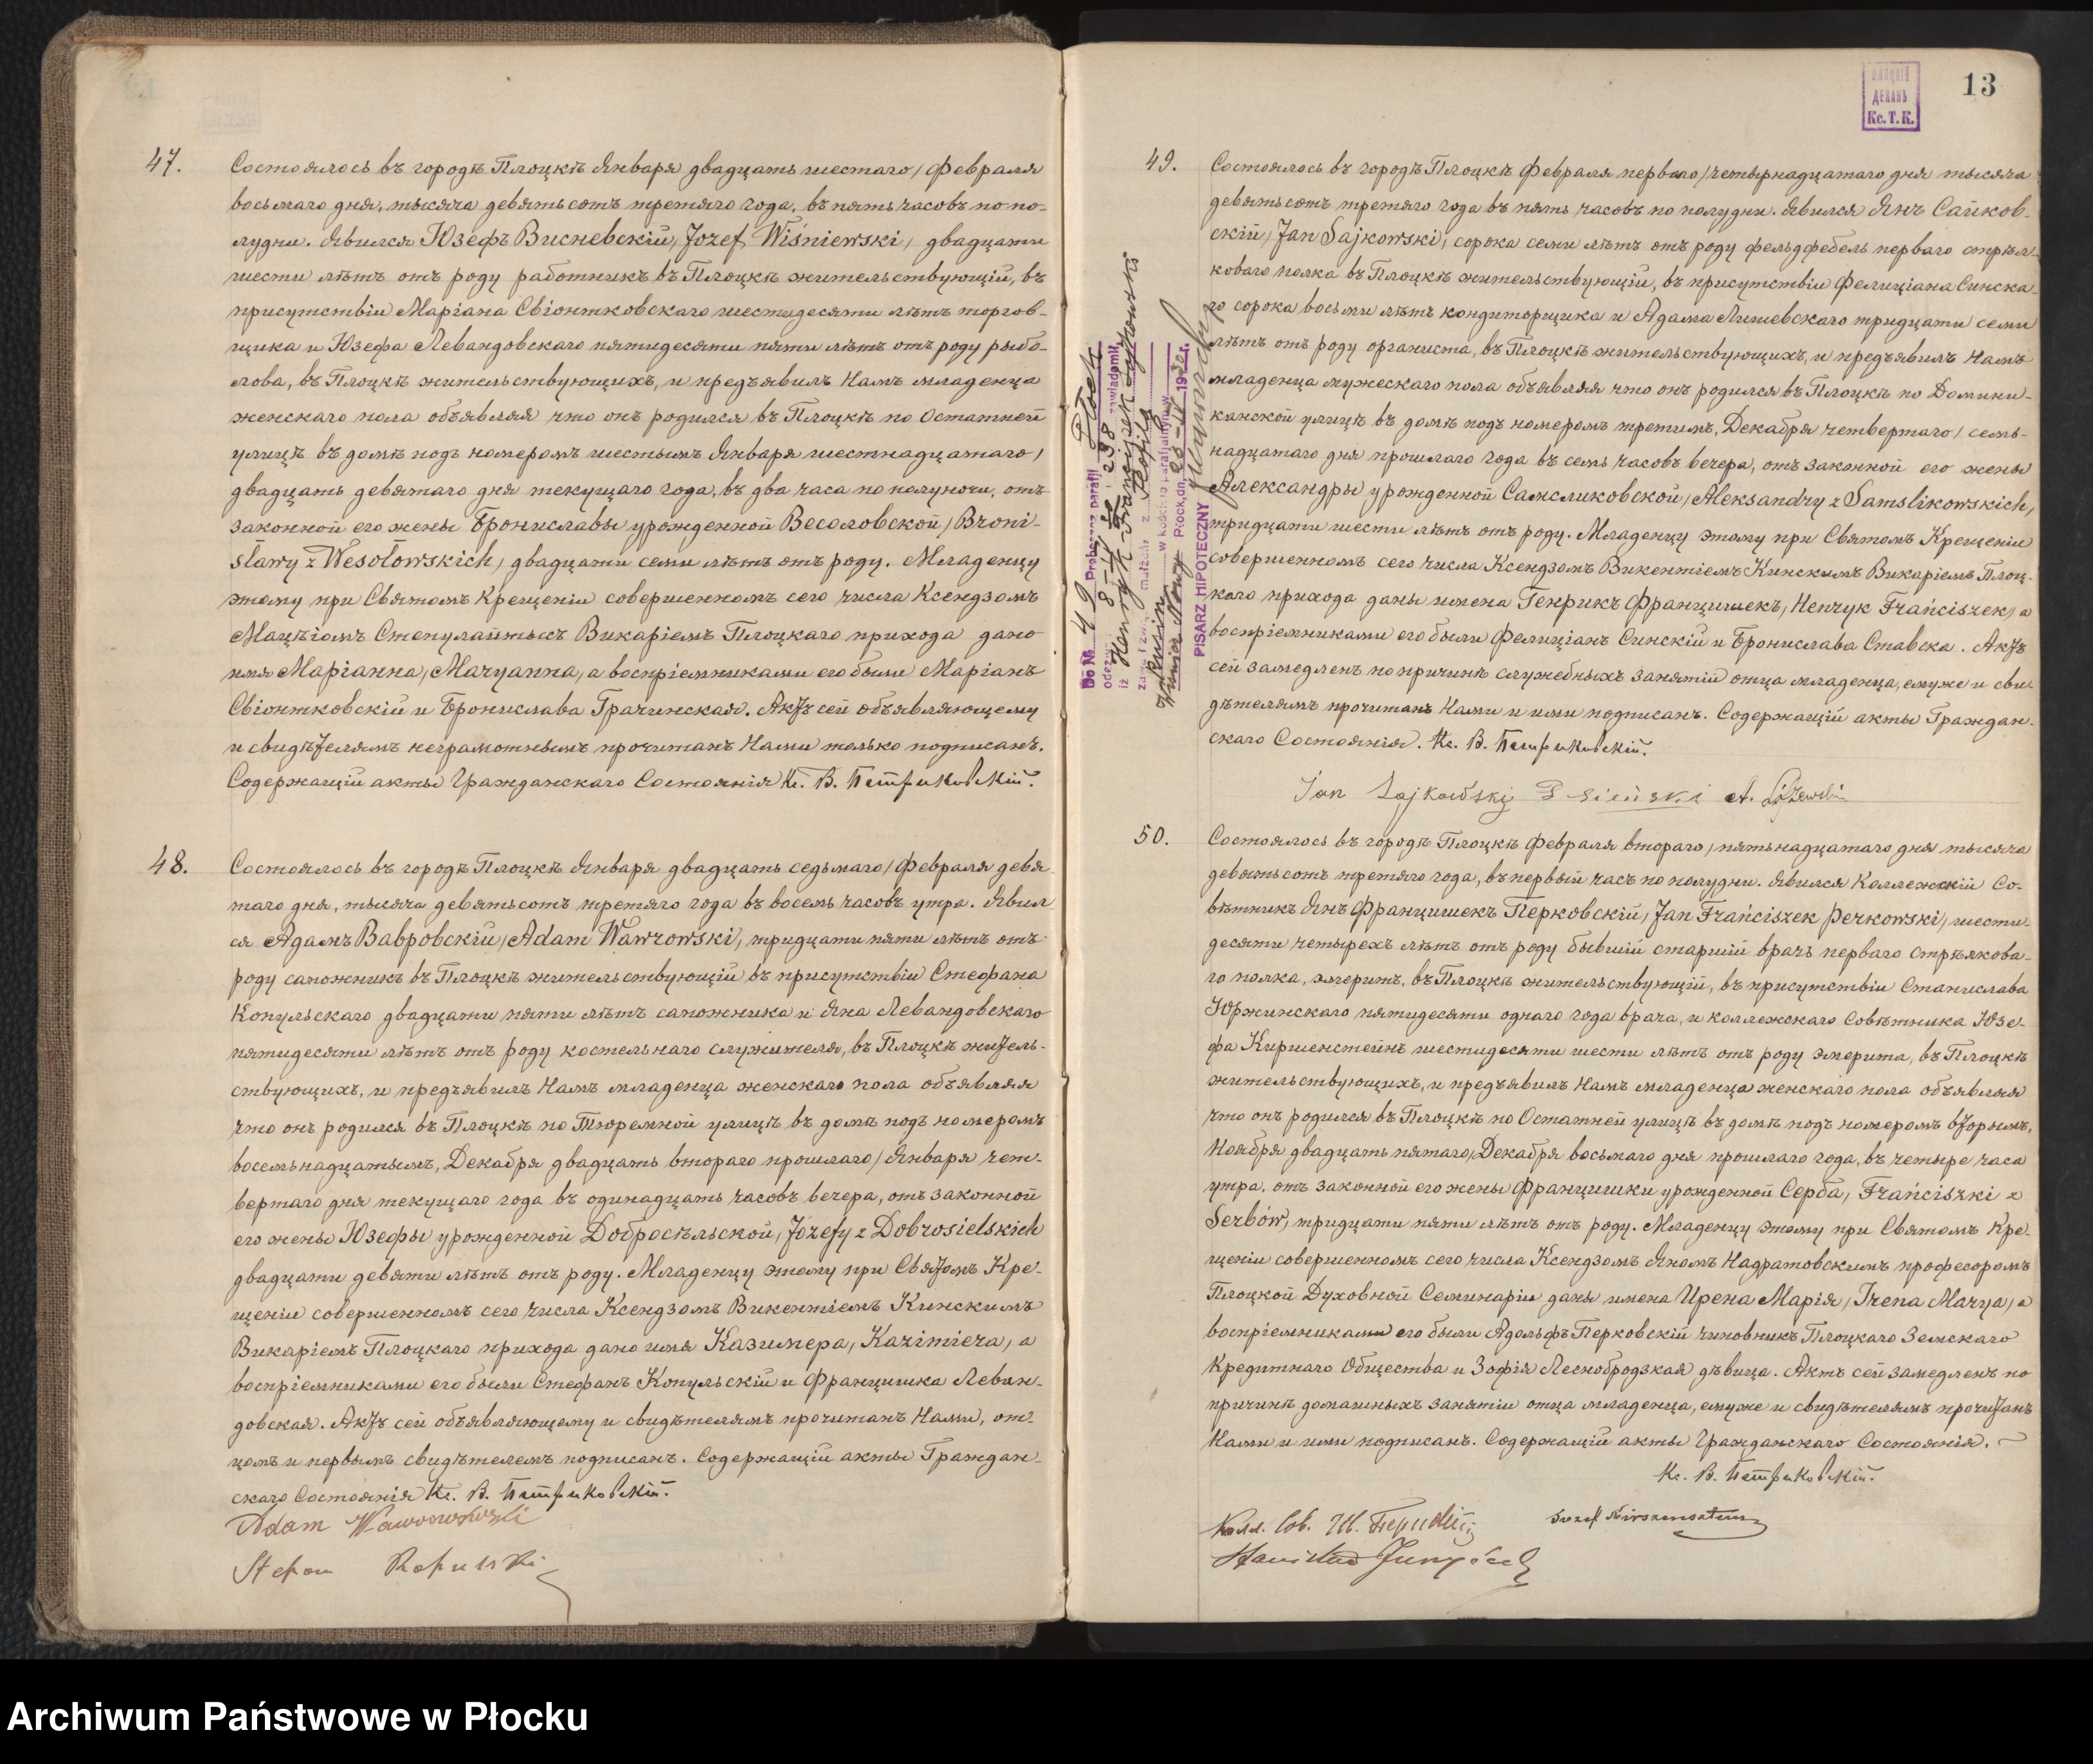 47.
Состоялось въ городѣ Плоцкѣ Января двадцать шестаго/Февраля
восьмаго дня, тысяча девятьсотъ третяго года, въ пять часовъ по по-
лудни. Явился Юзефъ Висневскій, Jozef Wiśniewski, двадцати
шести лѣтъ отъ роду работникъ въ Плоцкѣ жительствующій, въ
присутствіи Маріана Свіонтковскаго шестидесяти лѣтъ торгов-
щика и Юзефа Левандовскаго пятидесяти пяти лѣтъ отъ роду рыбо-
лова, въ Плоцкѣ жительствующихъ, и предъявилъ Намъ младенца
женскаго пола объявляя что онъ родился въ Плоцкѣ по Остатней
улицѣ въ домѣ подъ номеромъ шестымъ Января шестнадцатаго/
двадцать девятаго дня текущаго года, въ два часа по полуночи, отъ
законной его жены Брониславы урожденной Весоловской, Broni-
sławy z Wesołowskich, двадцати семи лѣтъ отъ роду. Младенцу
этому при Святомъ Крещеніи совершенномъ сего числа Ксендзомъ
Мацѣіомъ Викаріемъ Плоцкаго прихода дано
имя Маріанна, Maryanna, а воспріемниками его были Маріанъ
Свіонтковскій и Бронислава Грачинская. Актъ сей объявляющему
и свидѣтелямъ неграмотнымъ прочитанъ Нами только подписанъ.
Содержащій акты Гражданскаго Состоянія Кс. В. Петриковскій.
48.
Состоялось въ городѣ Плоцкѣ Января двадцать седьмаго/Февраля девя-
таго дня, тысяча девятьсотъ третяго года въ восемь часовъ утра. Явил-
ся Адамъ Вавровскій, Adam Wawrowski, тридцати пяти лѣтъ отъ
роду сапожникъ въ Плоцкѣ жительствующій въ присутствіи Стефана
Копульскаго двадцати пяти лѣтъ сапожника и Яна Левандовскаго
пятидесяти лѣтъ отъ роду костельнаго служителя, въ Плоцкѣ житель-
ствующихъ, и предъявилъ Намъ младенца женскаго пола объявляя
что онъ родился въ Плоцкѣ по Тюремной улицѣ въ домѣ подъ номеромъ
восемьнадцатымъ, Декабря двадцать втораго прошлаго/Января чет-
вертаго дня текущаго года въ одинадцать часовъ вечера, отъ законной
его жены Юзефы урожденной Добросѣльской, Józefy z Dobrosielskich
двадцати девяти лѣтъ отъ роду. Младенцу этому при Святомъ Кре-
щеніи совершенномъ сего числа Ксендзомъ Викентіемъ Кинскимъ
Викаріемъ Плоцкаго прихода дано имя Казимера, Kazimiera, а
воспріемниками его были Стефанъ Копульскій и Францишка Леван-
довская. Актъ сей объявляющему и свидѣтелямъ прочитанъ Нами, от-
цомъ и первымъ свидѣтелемъ подписанъ. Содержащій акты Граждан-
скаго Состоянія Кс. В. Петриковскій.
Adam Wawrowski
Stefan Kopulski
ПЛОЦКІЙ
ДЕКАНЪ
Кс. Т. К.
13
Do № 49 Proboszcz parafji Płock
zawiadomił,
iż Henryk Franciszek Sajkowski
Płock, dn.
PISARZ HIPOTECZNY
49.
Состоялось въ городѣ Плоцкѣ Февраля перваго/четырнадцатаго дня тысяча
девятьсотъ третяго года въ пять часовъ по полудни. Явился Янъ Сайков-
скій, Jan Sajkowski, сорока семи лѣтъ отъ роду фельдфебель перваго стрѣл-
коваго полка въ Плоцкѣ жительствующій, въ присутствіи Фелиціана Синска-
го сорока восьми лѣтъ кондиторщика и Адама Лишевскаго тридцати семи
лѣтъ отъ роду органиста, въ Плоцкѣ жительствующихъ, и предъявилъ Намъ
младенца мужескаго пола объявляя что онъ родился въ Плоцкѣ по Домини-
канской улицѣ въ домѣ подъ номеромъ третимъ, Декабря четвертаго/семь-
надцатаго дня прошлаго года въ семь часовъ вечера, отъ законной его жены
Александры урожденной Самсликовской, Aleksandry z Samslikowskich,
тридцати шести лѣтъ отъ роду. Младенцу этому при Святомъ Крещеніи
совершенномъ сего числа Ксендзомъ Викентіемъ Кинскимъ Викаріемъ Плоц-
каго прихода даны имена Генрикъ Францишекъ, Henryk Franciszek, а
воспріемниками его были Фелиціанъ Синскій и Бронислава Ставска. Актъ
сей замедленъ по причинѣ служебныхъ занятій отца младенца, ему же и сви-
дѣтелямъ прочитанъ Нами и ими подписанъ. Содержащій акты Граждан-
скаго Состоянія. Кс. В. Петриковскій.
Jan Sajkowski F Sieński A. Liżewski
50.
Состоялось въ городѣ Плоцкѣ Февраля втораго/пятьнадцатаго дня тысяча
девятьсотъ третяго года, въ первый часъ по полудни. Явился Коллежскій Со-
вѣтникъ Янъ Францишекъ Перковскій, Jan Franciszek Perkowski, шести-
десяти четырехъ лѣтъ отъ роду бывшій старшій врачъ перваго Стрѣлкова-
го полка, эмеритъ, въ Плоцкѣ жительствующій, въ присутствіи Станислава
Юржинскаго пятидесяти одного года врача, и коллежскаго Совѣтника Юзе-
фа Киршенстейнъ шестидесяти шести лѣтъ отъ роду эмерита, въ Плоцкѣ
жительствующихъ, и предъявилъ Намъ младенца женскаго пола объявляя
что онъ родился въ Плоцкѣ по Остатней улицѣ въ домѣ подъ номеромъ вторымъ,
Ноября двадцать пятаго/Декабря восьмаго дня прошлаго года, въ четыре часа
утра, отъ законной его жены Францишки урожденной Серба, Franciszki z
Serbów, тридцати пяти лѣтъ отъ роду. Младенцу этому при Святомъ Кре-
щеніи совершенномъ сего числа Ксендзомъ Яномъ Надратовскимъ професоромъ
Плоцкой Духовной Семинаріи даны имена Ирена Марія, Irena Marya, а
воспріемниками его были Адольфъ Перковскій чиновникъ Плоцкаго Земскаго
Кредитнаго Общества и Зофія Леснобродзкая дѣвица. Актъ сей замедленъ по
причинѣ домашныхъ занятіи отца младенца, ему же и свидѣтелямъ прочитанъ
Нами и ими подписанъ. Содержащій акты Гражданскаго Состоянія.
Кс. В. Петриковскій.
Колл. Сов.
Józef Kirszensztein
Stanisław
Archiwum Państwowe w Płocku